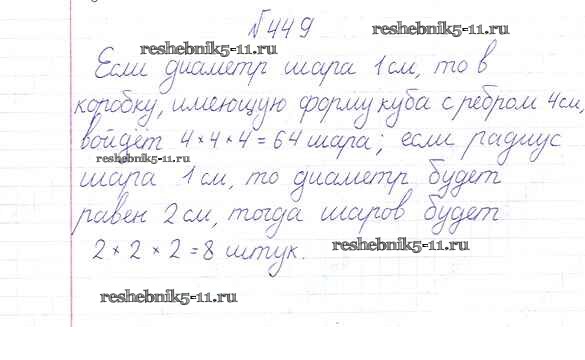 №449
reshebnik5-11.ru
reshebnik5-11.ru
Если диаметр шара 1см, то в
коробку, имеющую форму куба с ребром 4см,
войдёт 4 × 4 × 4 = 64 шара; если радиус
reshebnik5-11.ru
шара 1см, то диаметр будет
равен 2см, тогда шаров будет
2 × 2 × 2 = 8 штук.
reshebnik5-11.ru
reshebnik5-11.ru